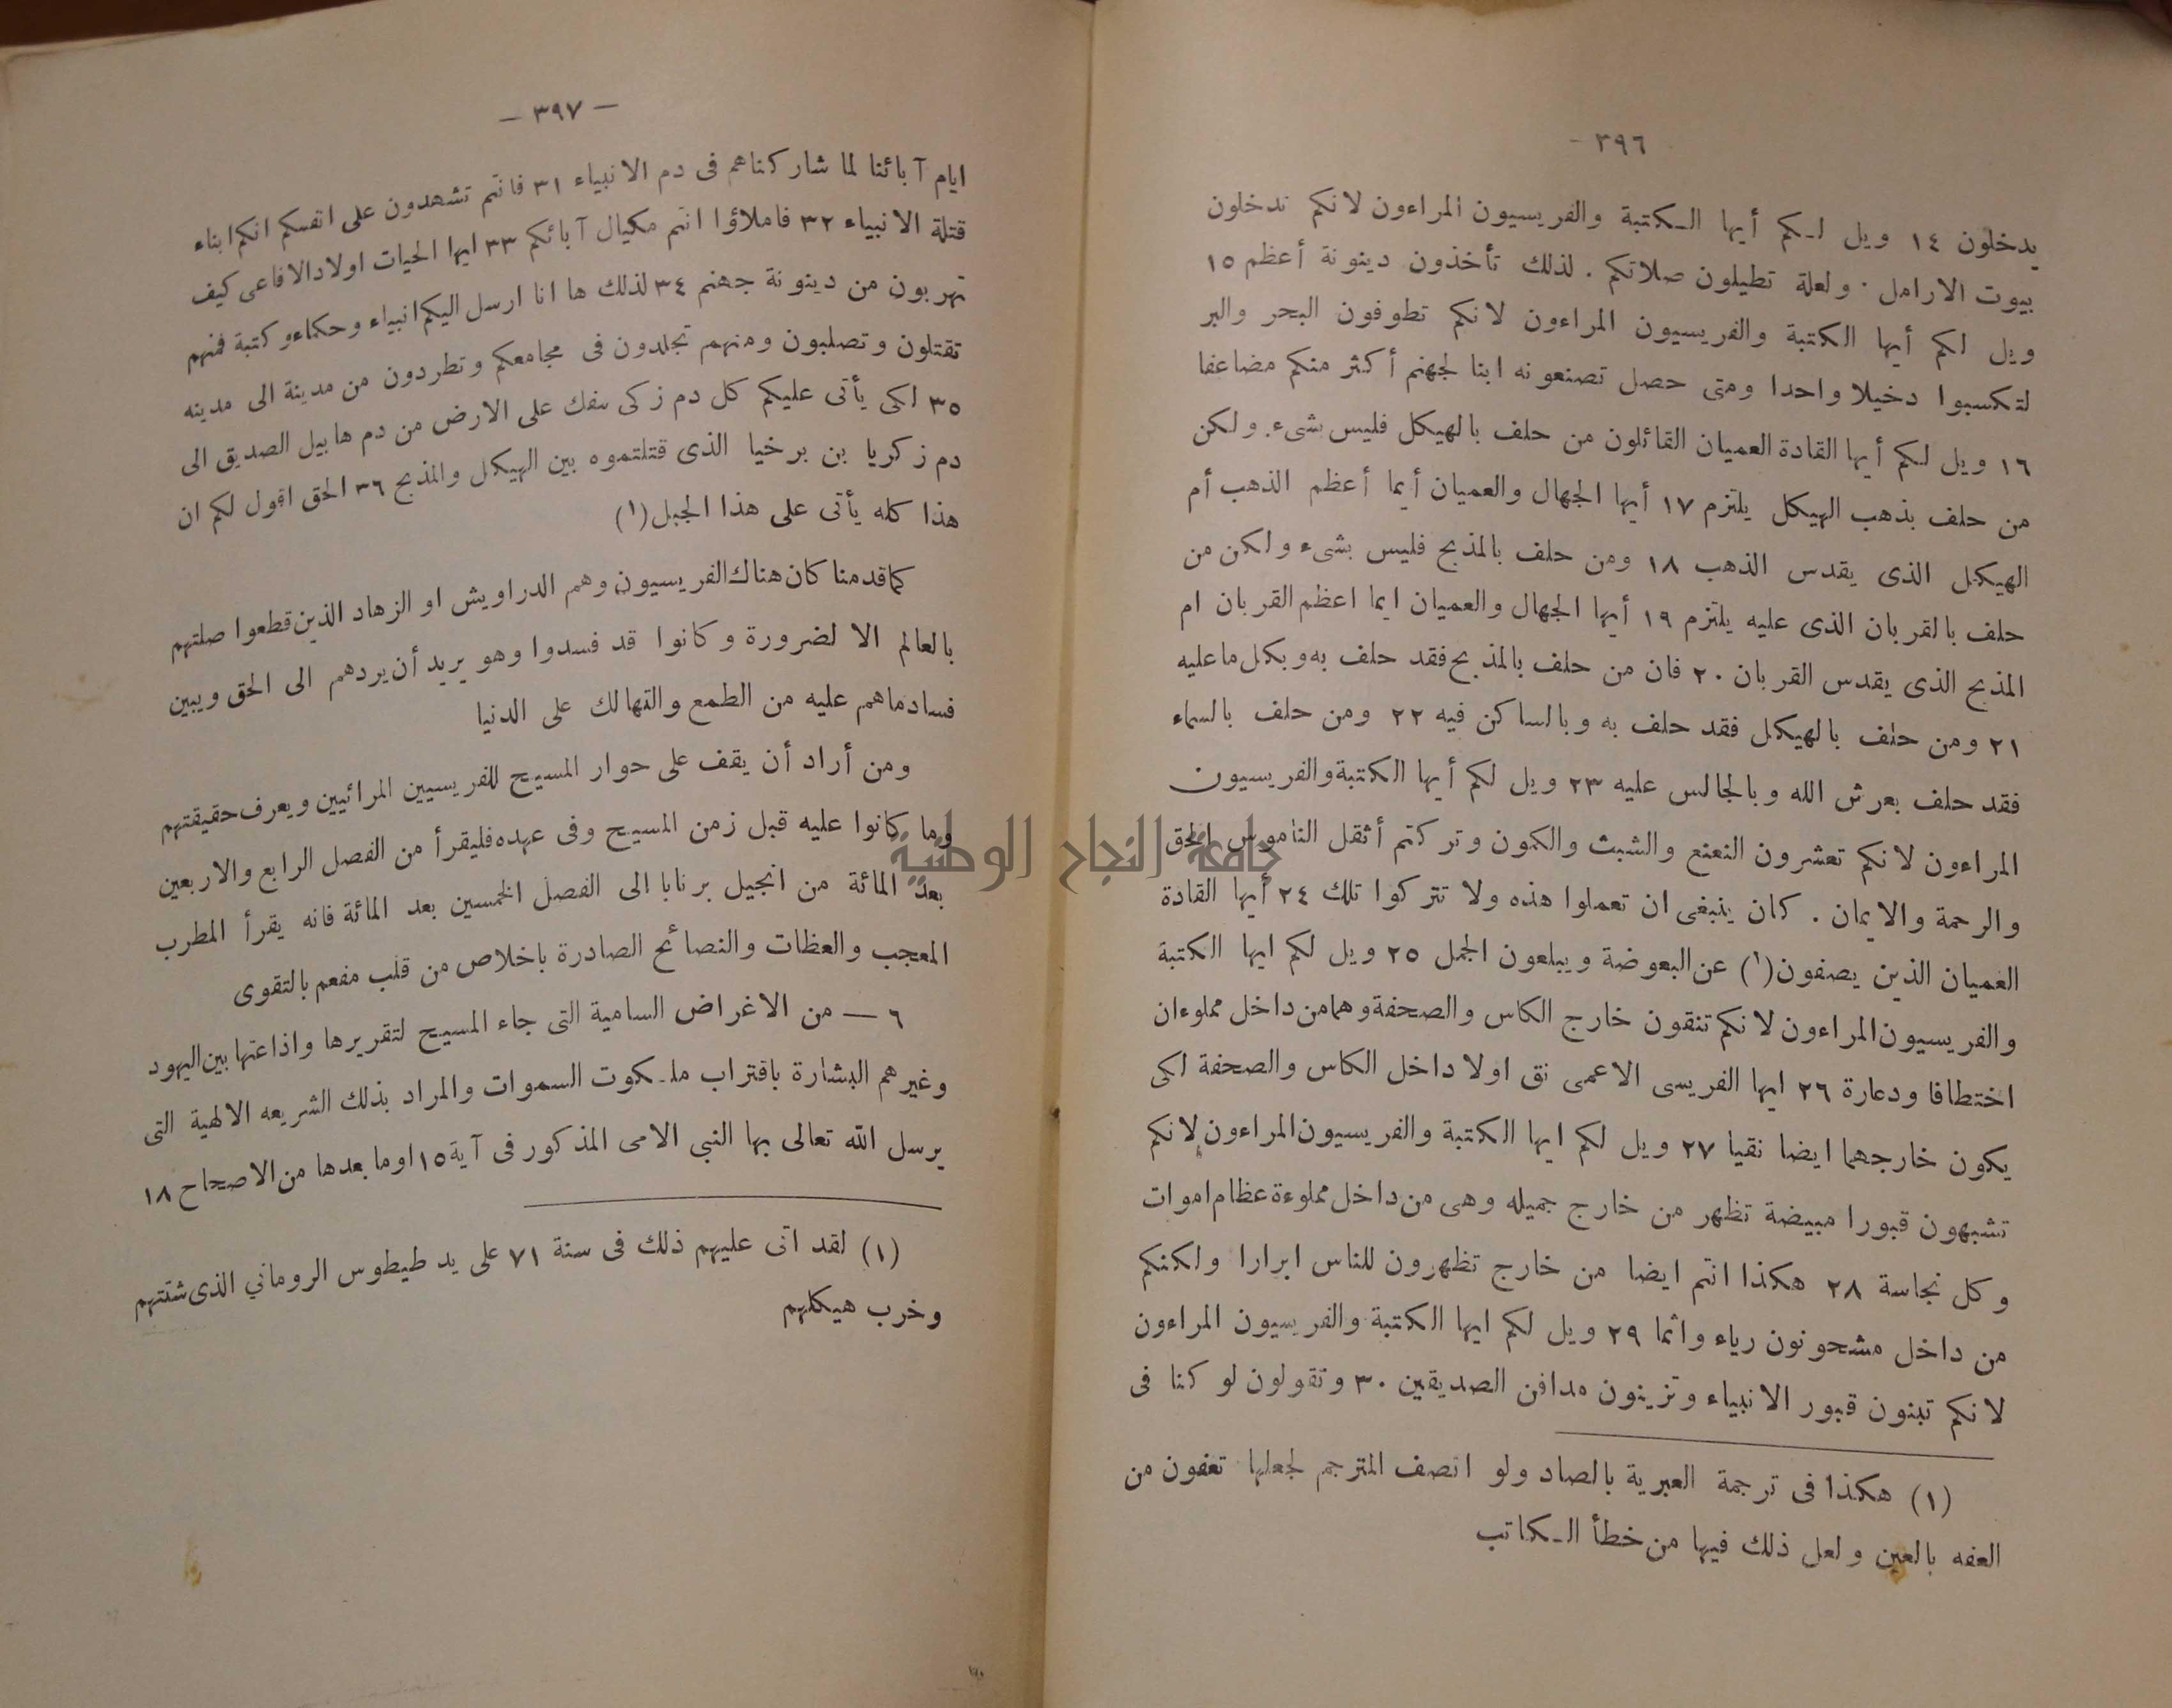 - ٣٩٦
يدخلون ١٤ ويل لـكم أيها الـكتبة والفريسيون المراءون لانكم تدخلون
بيوت الارامل . ولعلة تطيلون صلاتكم . لذلك تأخذون دينونة أعظم ١٥
ويل لكم أيها الكتبة والفريسيون المراءون لانكم تطوفون البحر والبر
لتكسبوا دخيلا واحدا ومتى حصل تصنعونه ابنا لجهنم أكثر منكم مضاعفا
١٦ ويل لكم أيها القادة العميان القائلون من حلف بالهيكل فليس بشىء. ولكن
من حلف بذهب الهيكل يلتزم ١٧ أيها الجهال والعميان أيما أعظم الذهب أم
الهيكل الذى يقدس الذهب ١٨ ومن حلف بالمذبح فليس بشىء ولكن من
حلف بالقربان الذى عليه يلتزم ١٩ أيها الجهال والعميان ايما اعظم القربان ام
المذبح الذى يقدس القربان ٢٠ فان من حلف بالمذبح فقد حلف به وبكل ما عليه
٢١ ومن حلف بالهيكل فقد حلف به وبالساكن فيه ٢٢ ومن حلف بالسماء
فقد حلف بعرش الله وبالجالس عليه ٢٣ ويل لكم أيها الكتبة والفريسيون
المراءون لانكم تعشرون النعنع والشبث والكمون وتركتم أثقل الناموس الحق
والرحمة والايمان . كان ينبغى ان تعملوا هذه ولا تتركوا تلك ٢٤ أيها القادة
العميان الذين يصفون (١) عن البعوضة ويبلعون الجمل ٢٥ ويل لكم ايها الكتبة
والفريسيون المراءون لانكم تنقون خارج الكاس والصحفة وهما من داخل مملوءان
اختطافا ودعارة ٢٦ ايها الفريسى الاعمى نق اولا داخل الكاس والصحفة لكى
يكون خارجهما ايضا نقيا ٢٧ ويل لكم ايها الكتبة والفريسيون المراءون لانكم
تشبهون قبورا مبيضة تظهر من خارج جميله وهى من داخل مملوءة عظام اموات
وكل نجاسة ٢٨ هكذا انتم ايضا من خارج تظهرون للناس ابرارا ولكنكم
من داخل مشحونون رياء واثما ٢٩ ويل لكم ايها الكتبة والفريسيون المراءون
لانكم تبنون قبور الانبياء وتزينون مدافن الصديقين ٣٠ وتقولون لو كنا فى
(١) هكذا فى ترجمة العبرية بالصاد ولو انصف المترجم لجعلها تعفون من
العفه بالعين ولعل ذلك فيها من خطأ الـكاتب
— ٣٩٧ —
ايام آبائنا لما شاركناهم فى دم الانبياء ٣١ فانتم تشهدون على انفسكم انكم ابناء
قتلة الانبياء ٣٢ فاملاؤا انتم مكيال آبائكم ٣٣ ايها الحيات اولاد الافاعى كيف
تهربون من دينونة جهنم ٣٤ لذلك ها انا ارسل اليكم انبياء وحكماء وكتبة فمنهم
تقتلون وتصلبون ومنهم تجلدون فى مجامعكم وتطردون من مدينة الى مدينه
٣٥ لكى يأتى عليكم كل دم زكى سفك على الارض من دم هابيل الصديق الى
دم زكريا بن برخيا الذى قتلتموه بين الهيكل والمذبح ٣٦ الحق اقول لكم ان
هذا كله يأتى على هذا الجبل (١)
كما قدمنا كان هناك الفريسيون وهم الدراويش او الزهاد الذين قطعوا صلتهم
بالعالم الا لضرورة وكانوا قد فسدوا وهو يريد أن يردهم الى الحق ويبين
فساد ماهم عليه من الطمع والتهالك على الدنيا
ومن أراد أن يقف على حوار المسيح للفريسيين المرائيين ويعرف حقيقتهم
وما كانوا عليه قبل زمن المسيح وفى عهده فليقرأ من الفصل الرابع والاربعين
بعد المائة من انجيل برنابا الى الفصل الخمسين بعد المائة فانه يقرأ المطرب
المعجب والعظات والنصائح الصادرة باخلاص من قلب مفعم بالتقوى
٦ — من الاغراض السامية التى جاء المسيح لتقريرها واذاعتها بين اليهود
وغيرهم البشارة باقتراب ملـكوت السموات والمراد بذلك الشريعه الالهية التى
يرسل الله تعالى بها النبي الامى المذكور فى آية ١٥ وما بعدها من الاصحاح ١٨
(١) لقد أتى عليهم ذلك فى سنة ٧١ على يد طيطوس الروماني الذى شتتهم
وخرب هيكلهم
جامعة النجاح الوطنية